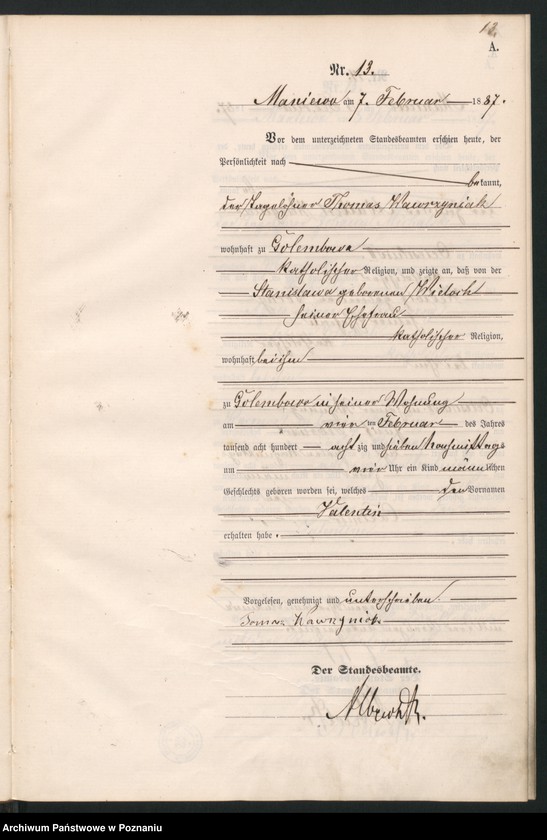 13.
A.
Nr. 13.
Maniewo am 7. Februar 1887.
Vor dem unterzeichneten Standesbeamten erschien heute, der
Persönlichkeit nach
bekannt,
der Tagelöhner Thomas Wawrzyniak
wohnhaft zu Golembowo
katholischer Religion, und zeigte an, daß von der
Stanislawa geborenen
seiner Ehefrau
katholischer Religion,
wohnhaft bei ihm
zu Golembowo in seiner Wohnung
am vier ten Februar des Jahres
tausend acht hundert acht zig und sieben Nachmittags
um vier Uhr ein Kind männlichen
Geschlechts geboren worden sei, welches den Vornamen
Valentin
erhalten habe.
Vorgelesen, genehmigt und unterschrieben.
Der Standesbeamte.
Archiwum Państwowe w Poznaniu